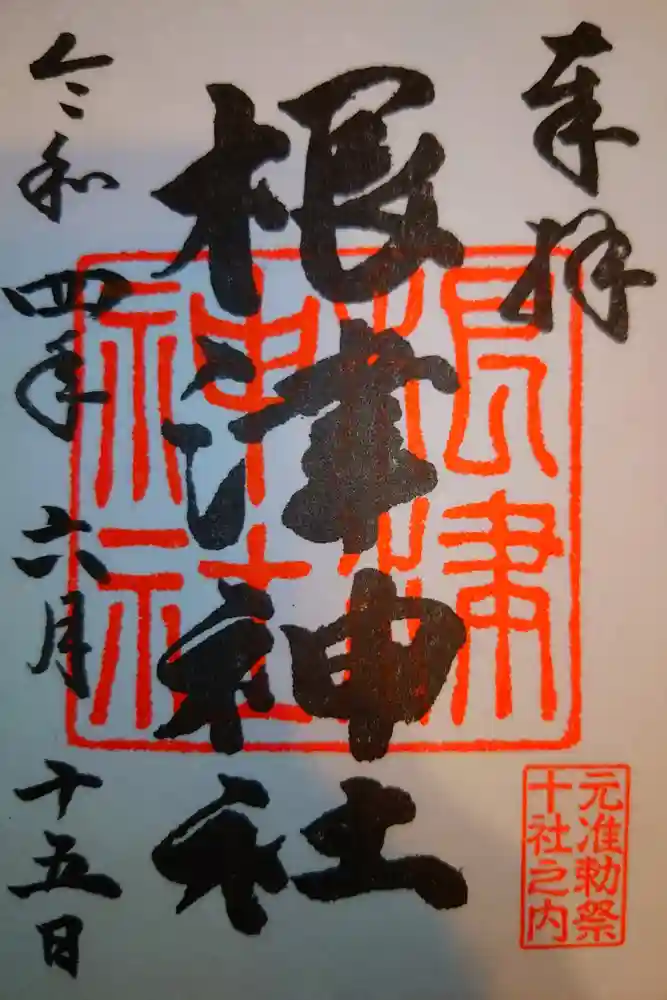 奉拝
根津神社
根津
神社
元准勅祭
十社之内
令和四年六月十五日